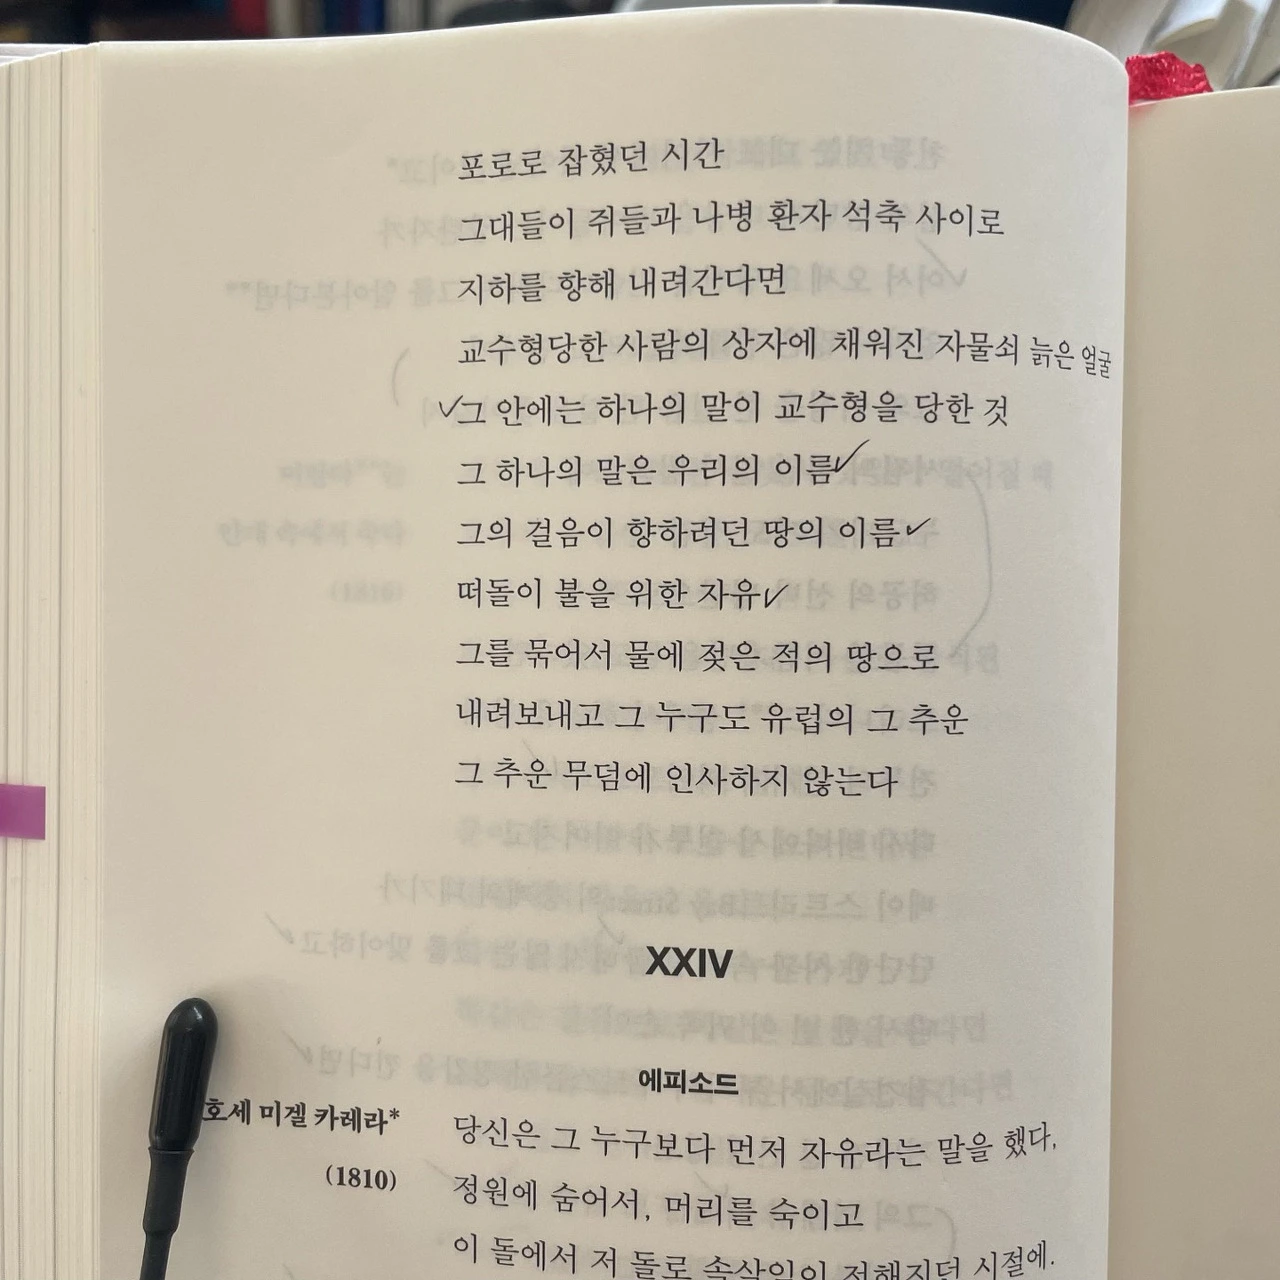 포로로 잡혔던 시간
그대들이 쥐들과 나병 환자 석축 사이로
지하를 향해 내려간다면
교수형당한 사람의 상자에 채워진 자물쇠 늙은 얼굴
그 안에는 하나의 말이 교수형을 당한 것
그 하나의 말은 우리의 이름
그의 걸음이 향하려던 땅의 이름
떠돌이 불을 위한 자유
그를 묶어서 물에 젖은 적의 땅으로
내려보내고 그 누구도 유럽의 그 추운
그 추운 무덤에 인사하지 않는다
XXIV
에피소드
호세 미겔 카레라*
(1810)
당신은 그 누구보다 먼저 자유라는 말을 했다,
정원에 숨어서, 머리를 숙이고
이 돌에서 저 돌로 속삭임이 전해지던 시절에.